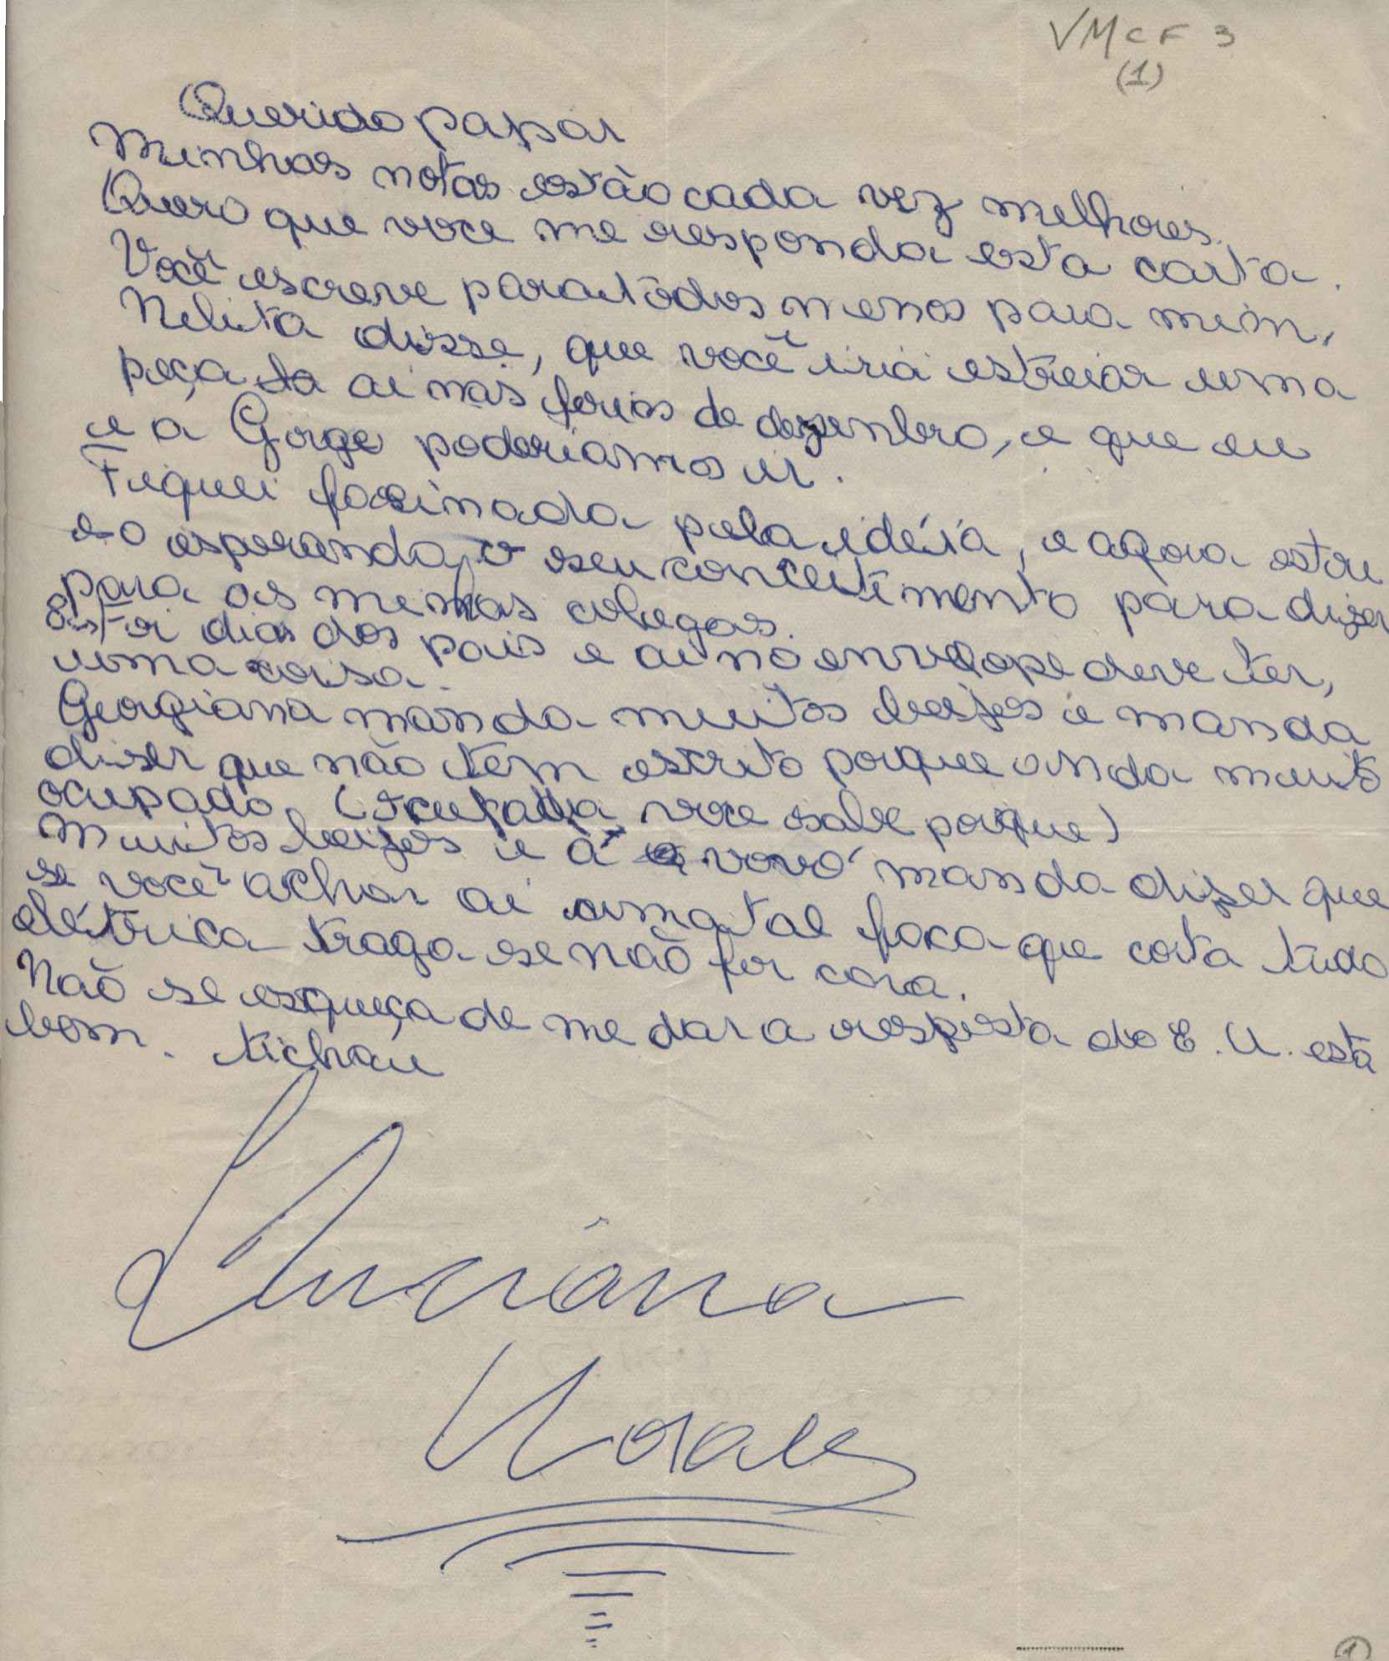 VMCF 3
(1)
Querido papai
Minhas notas estão cada vez melhores.
Quero que voce me responda esta carta.
Você escreve para todos menos para mim,
Nelita disse, que você iria estreiar uma
peça aí nas ferias de dezembro, e que eu
e a Gorge poderiamos ir.
Fiquei fasinada pela idéia, e agora estou
so esperando o seu concetimento para dizer
para as minhas colegas.
foi dia dos pais e aí no envelope deve ter,
uma coisa.
Georgiana manda muitos beijos e manda
diser que não tem escrito porque anda muito
ocupado. (voce sabe porque)
Muitos beijos e á vovó manda dizer que
se você achar aí uma tal faca que corta tudo
elétrica traga se não for cara.
Não se esqueça de me dar a resposta do E. U. está
bom. tichau
Luciana
Moraes
1